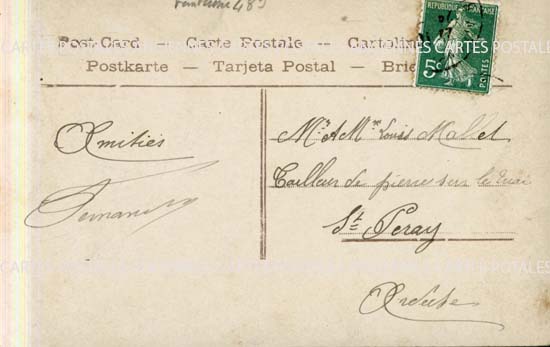 Post Card — Carte Postale — Cartolina
Postkarte — Tarjeta Postal — Brie
REPUBLIQUE FRANÇAISE
5c
POSTES
Amitiés
Mr & Mme Louis Mallet
Tailleur de pierre sur le quai
St Peray
Ardèche
CARTES POSTALES